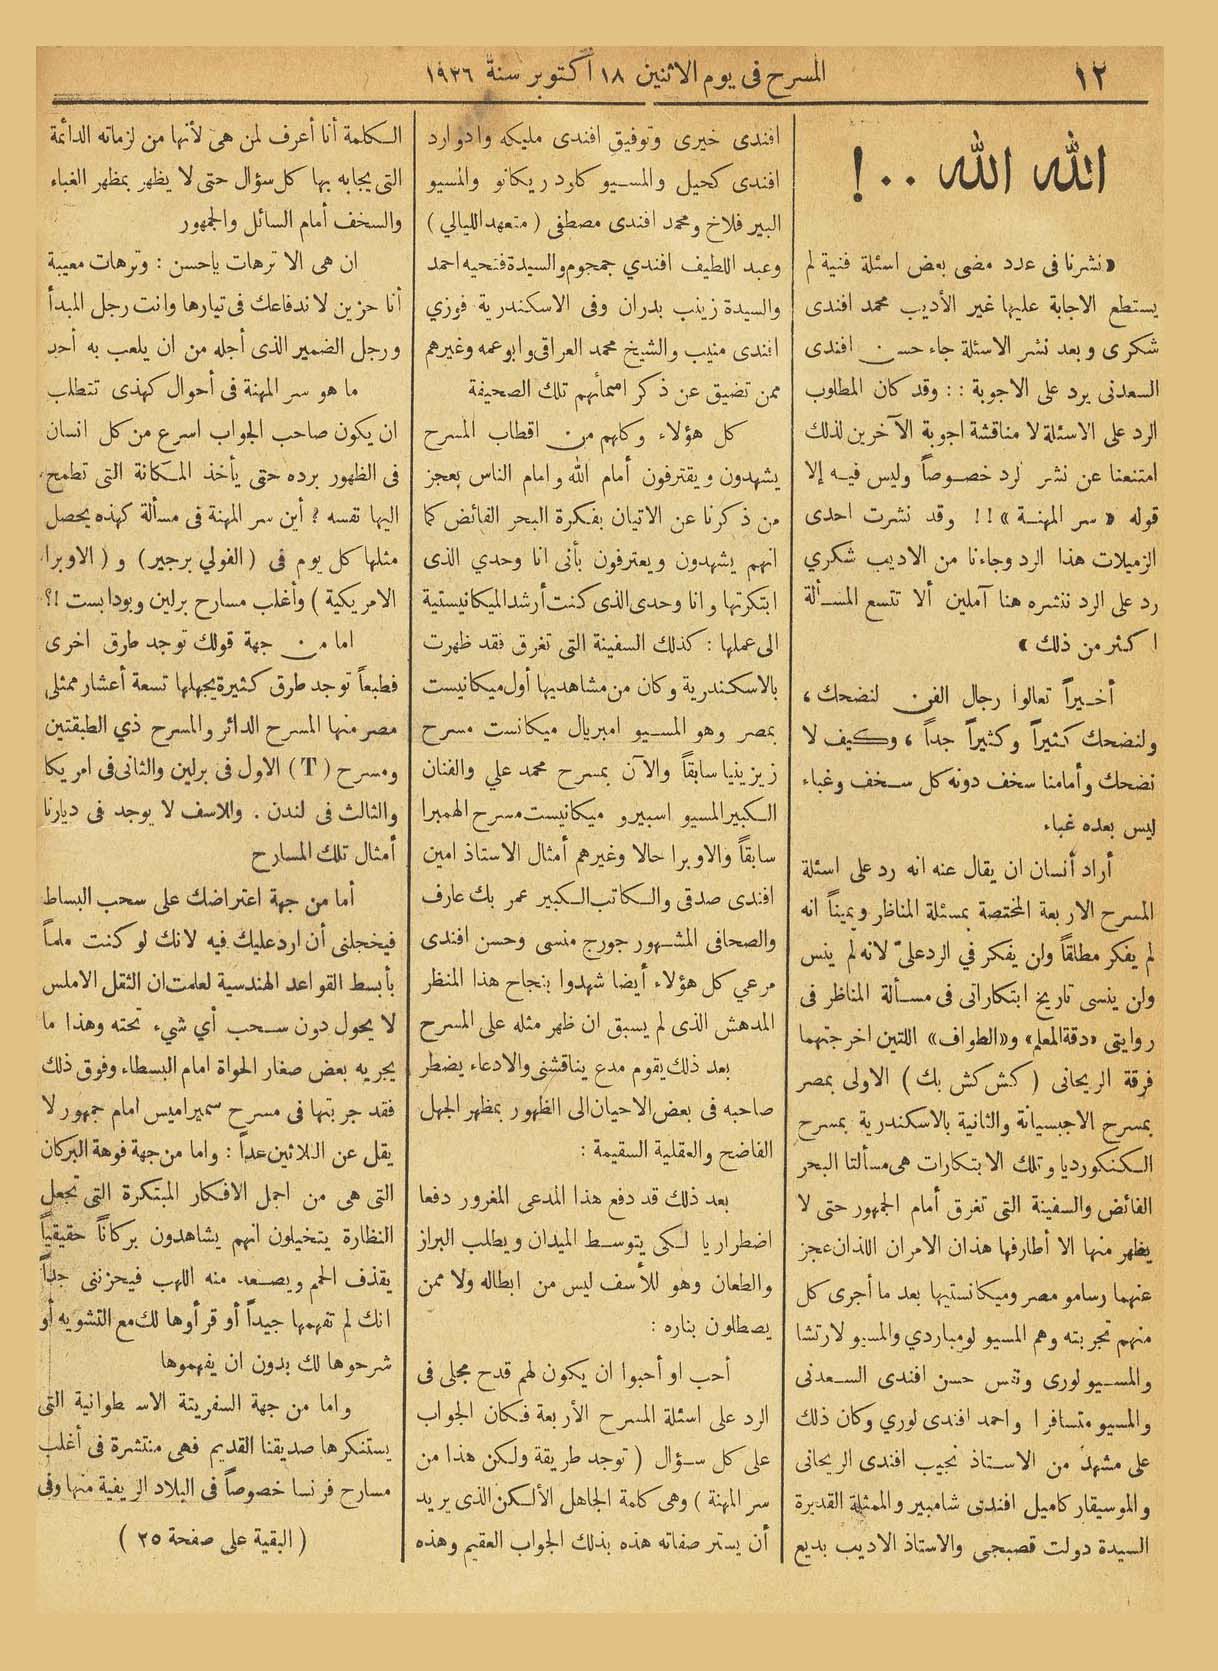 ١٢
المسرح فى يوم الاثنين ١٨ أكتوبر سنة ١٩٣٦
الله الله ..!
«نشرنا فى عدد مضى بعض اسئلة فنية لم
يستطع الاجابة عليها غير الأديب محمد افندى
شكرى وبعد نشر الاسئلة جاء حسن افندى
السعدنى يرد على الاجوبة :: وقد كان المطلوب
الرد على الاسئلة لا مناقشة اجوبة الآخرين لذلك
امتنعنا عن نشر الرد خصوصاً وليس فيه إلا
قوله «سر المهنة»!! وقد نشرت احدى
الزميلات هذا الرد وجاءنا من الاديب شكري
رد على الرد ننشره هنا آملين ألا تتسع المسألة
اكثر من ذلك»
أخيراً تعالوا رجال الفن لنضحك،
ولنضحك كثيراً وكثيراً جداً، وكيف لا
نضحك وأمامنا سخف دونه كل سخف وغباء
ليس بعده غباء
أراد أنسان ان يقال عنه انه رد على اسئلة
المسرح الاربعة المختصة بمسئلة المناظر ويميناً انه
لم يفكر مطلقاً ولن يفكر في الرد علىّ لانه لم ينس
ولن ينسى تاريخ ابتكاراتى فى مسألة المناظر فى
روايتى «دقة المعلم» و«الطواف» اللتين اخرجتهما
فرقة الريحانى (كش كش بك) الاولى بمصر
بمسرح الاجبسيانة والثانية بالاسكندرية بمسرح
الكنكورديا وتلك الابتكارات هى مسألتا البحر
الفائض والسفينة التى تغرق أمام الجمهور حتى لا
يظهر منها الا أطارفها هذان الامران اللذان عجز
عنهما رسامو مصر وميكانستيها بعد ما أجرى كل
منهم تجربته وهم المسيو لومباردي والمسيو لارتشا
والمسيو لورى وتنس حسن افندى السعدنى
والمسيو متسافرا واحمد افندى لوري وكان ذلك
على مشهد من الاستاذ نجيب افندى الريحانى
والموسيقار كاميل افندى شامبير والممثلة القديرة
السيدة دولت قصبجى والاستاذ الاديب بديع
افندى خيرى وتوفيق افندى مليكه وادوارد
افندى كحيل والمسيو كارد ريكانو والمسيو
البير فلاخ ومحمد افندى مصطفى (متعهد الليالي)
وعبد اللطيف افندي جمجوم والسيدة فتحيه احمد
والسيدة زينب بدران وفى الاسكندرية فوزي
افندى منيب والشيخ محمد العراقى وابو عمه وغيرهم
ممن تضيق عن ذكر اسمائهم تلك الصحيفة
كل هؤلاء وكلهم من اقطاب المسرح
يشهدون ويقترفون أمام الله وامام الناس بعجز
من ذكرنا عن الاتيان بفكرة البحر الفائض كما
انهم يشهدون ويعترفون بأنى انا وحدي الذى
ابتكرتها وانا وحدى الذى كنت أرشد الميكانيستية
الى عملها: كذلك السفينة التى تغرق فقد ظهرت
بالاسكندرية وكان من مشاهديها أول ميكانيست
بمصر وهو المسيو امبريال ميكانست مسرح
زيزينيا سابقاً والآن بمسرح محمد علي والفنان
الكبير المسيو اسبيرو ميكانيست مسرح الهمبرا
سابقاً والاوبرا حالا وغيرهم أمثال الاستاذ امين
افندى صدقى والكاتب الكبير عمر بك عارف
والصحافى المشهور جورج منسى وحسن افندى
مرعي كل هؤلاء أيضا شهدوا بنجاح هذا المنظر
المدهش الذى لم يسبق ان ظهر مثله على المسرح
بعد ذلك يقوم مدع يناقشنى والادعاء يضطر
صاحبه فى بعض الاحيان الى الظهور بمظهر الجهل
الفاضح والعقلية السقيمة:
بعد ذلك قد دفع هذا المدعى المغرور دفعا
اضطراريا لكى يتوسط الميدان ويطلب البراز
والطعان وهو للأسف ليس من ابطاله ولا ممن
يصطلون بناره:
أحب او أحبوا ان يكون لهم قدح مجلى فى
الرد على اسئلة المسرح الأربعة فكان الجواب
على كل سؤال (توجد طريقة ولكن هذا من
سر المهنة) وهى كلمة الجاهل الألكن الذى يريد
أن يستر صفاته هذه بذلك الجواب العقيم وهذه
الكلمة أنا أعرف لمن هى لأنها من لزماته الدائمة
التى يجابه بها كل سؤال حتى لا يظهر بمظهر الغباء
والسخف أمام السائل والجمهور
ان هى الا ترهات ياحسن: وترهات معيبة
أنا حزين لاندفاعك فى تيارها وانت رجل المبدأ
ورجل الضمير الذى أجله من ان يلعب به أحد
ما هو سر المهنة فى أحوال كهذى تتطلب
ان يكون صاحب الجواب اسرع من كل انسان
فى الظهور برده حتى يأخذ المكانة التى تطمح
اليها نفسه؟ أين سر المهنة فى مسألة كهذه يحصل
مثلها كل يوم فى (الفولي برجير) و(الاوبرا
الامريكية) وأغلب مسارح برلين وبودابست!؟
اما من جهة قولك توجد طرق اخرى
فطبعاً توجد طرق كثيرة يجهلها تسعة أعشار ممثلى
مصر منها المسرح الدائر والمسرح ذي الطبقتين
ومسرح (T) الاول فى برلين والثانى فى امريكا
والثالث فى لندن. وللاسف لا يوجد فى ديارنا
أمثال تلك المسارح
أما من جهة اعتراضك على سحب البساط
فيخجلنى أن ارد عليك فيه لانك لو كنت ملماً
بأبسط القواعد الهندسية لعلمت ان الثقل الاملس
لا يحول دون سحب أي شيء تحته وهذا ما
يجريه بعض صغار الحواة امام البسطاء وفوق ذلك
فقد جربتها فى مسرح سميراميس امام جمهور لا
يقل عن الثلاثين عداً: واما من جهة فوهة البركان
التى هى من اجمل الافكار المبتكرة التى تجعل
النظارة يتخيلون انهم يشاهدون بركاناً حقيقياً
يقذف الحمم ويصعد منه اللهب فيحزننى جداً
انك لم تفهمها جيداً أو قرأوها لك مع التشويه أو
شرحوها لك بدون ان يفهموها
واما من جهة السفريتة الاسطوانية التى
يستنكرها صديقنا القديم فهى منتشرة فى أغلب
مسارح فرنسا خصوصاً فى البلاد الريفية منها وفى
(البقية على صفحة ٢٥)